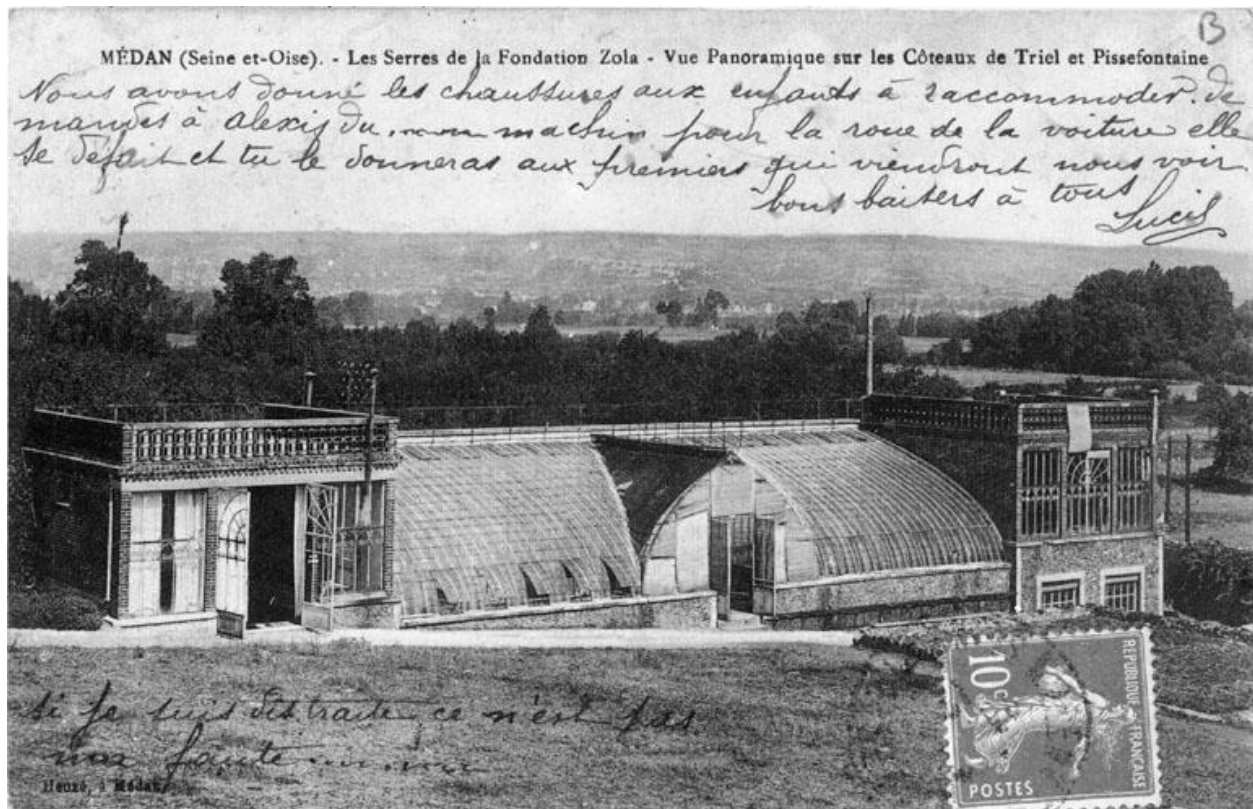 B
MÉDAN (Seine et-Oise). - Les Serres de la Fondation Zola - Vue Panoramique sur les Côteaux de Triel et Pissefontaine
Nous avons donné les chaussures aux enfants à raccommoder. de
mandes à alexis du ........ machin pour la roue de la voiture elle
se défait et tu le donneras aux premiers qui viendront nous voir
bons baisers à tous
Lucie
si je suis distraite ce n'est pas
ma faute ........
Heuzé, à Médan
RÉPUBLIQUE FRANÇAISE
10c
POSTES